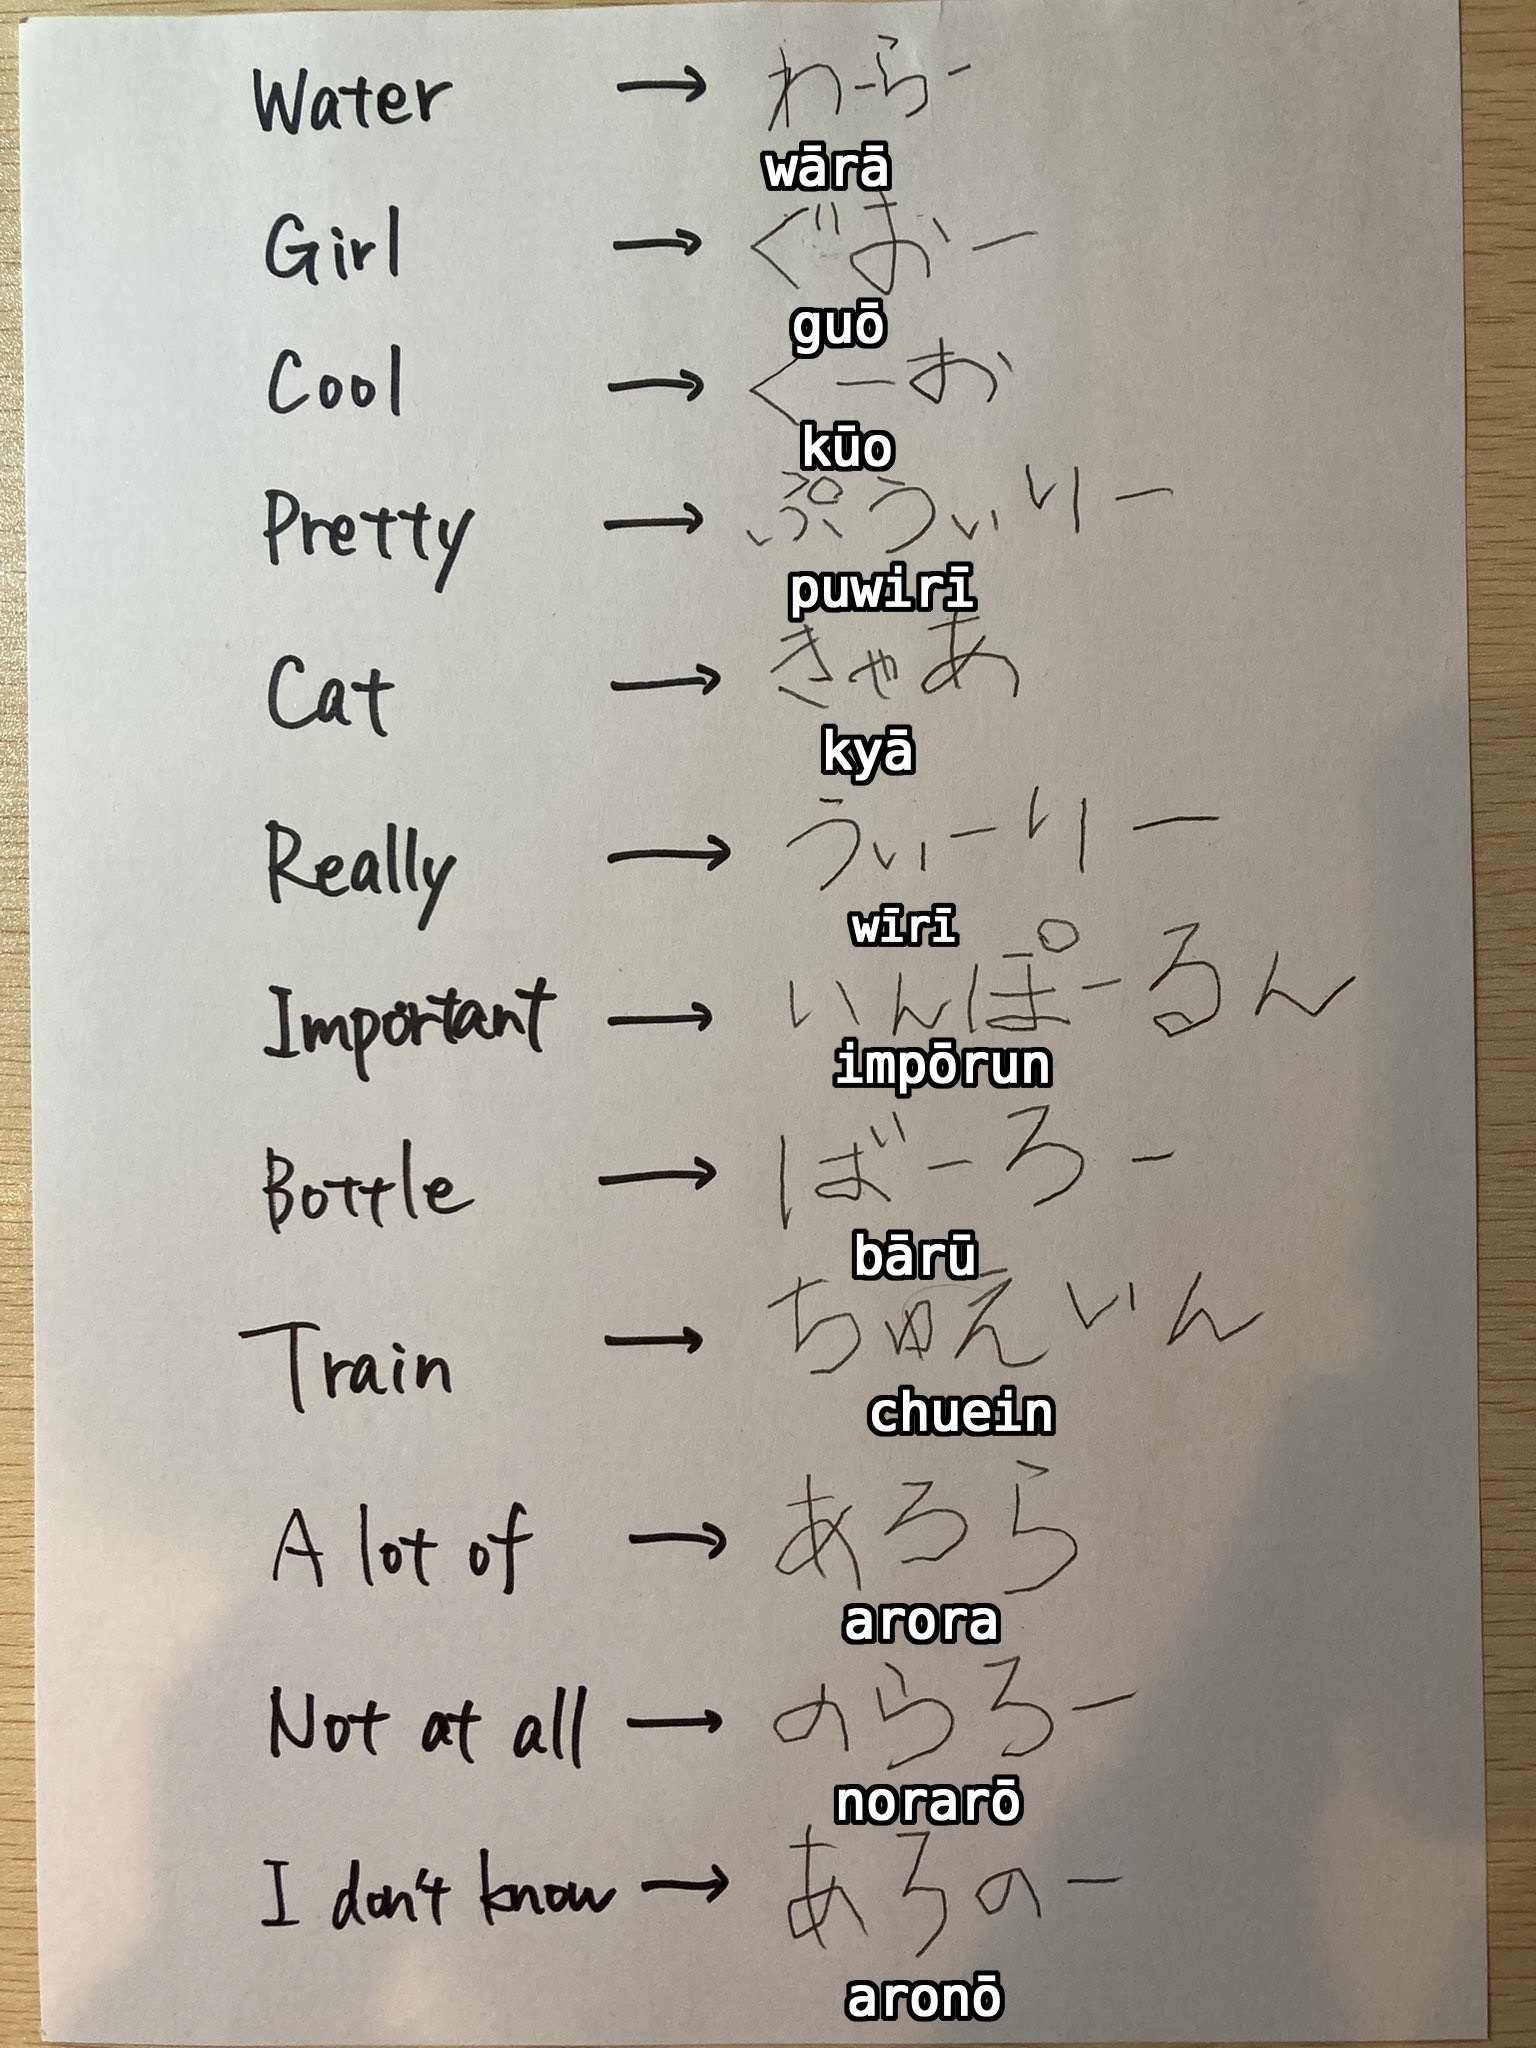 Water → わーらー
wārā
Girl → ぐおー
guō
Cool → くーお
kūo
Pretty → ぷうぃりー
puwirī
Cat → きゃあ
kyā
Really → うぃーりー
wīrī
Important → いんぽーるん
impōrun
Bottle → ばーろー
bārū
Train → ちゅえいん
chuein
A lot of → あろら
arora
Not at all → のらろー
norarō
I don't know → あろのー
aronō